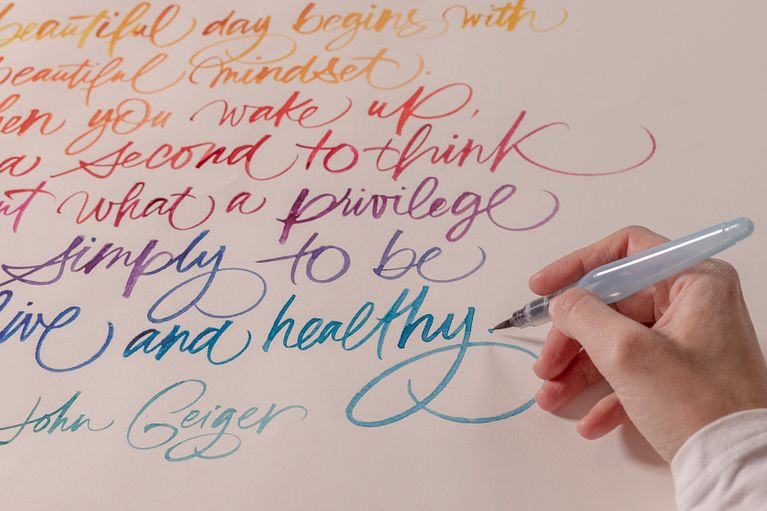 beautiful day begins with
beautiful mindset.
en you wake up,
a second to think
ut what a privilege
simply to be
live and healthy
John Geiger